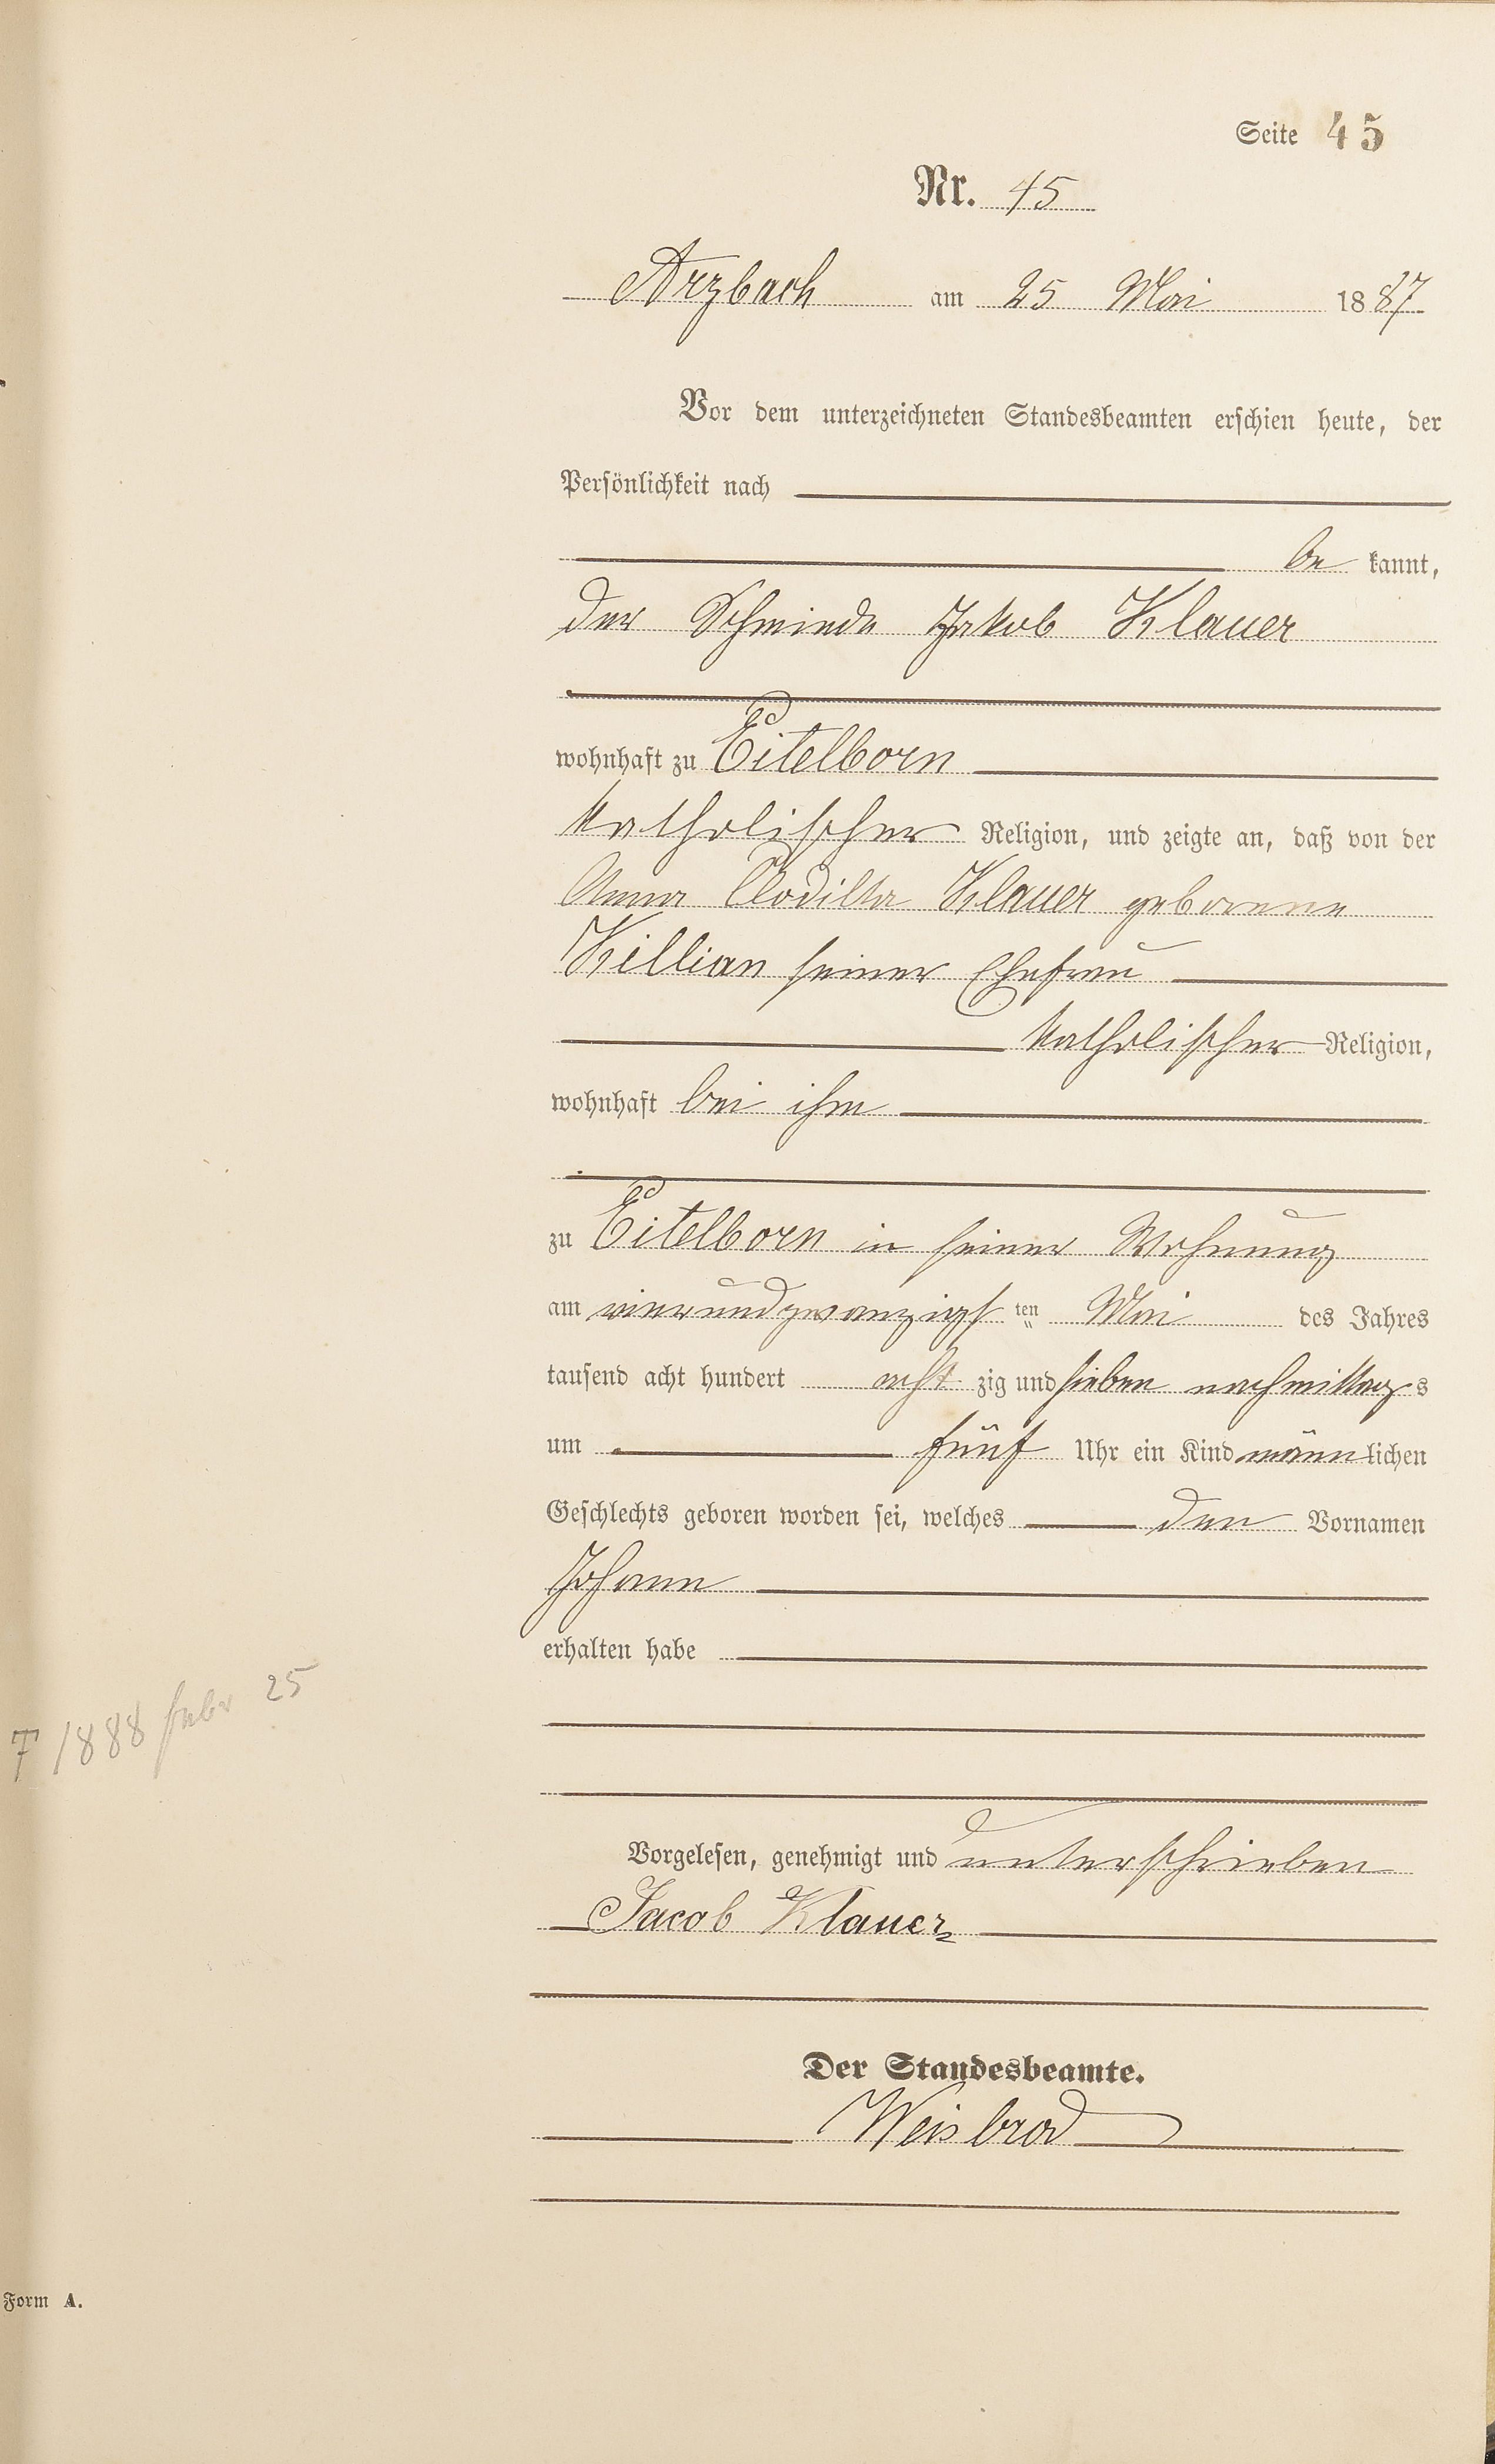 Seite 45
Nr. 45
Arzbach am 25 Mai 1887
Vor dem unterzeichneten Standesbeamten erschien heute, der
Persönlichkeit nach
be kannt,
der Schmiede Jakob Klauer
wohnhaft zu Eitelborn
katholischer Religion, und zeigte an, daß von der
Anna Klauer geborene
Killian seiner Ehefrau
katholischer Religion,
wohnhaft bei ihm
zu Eitelborn in seiner Wohnung
am vierundzwanzigsten Mai des Jahres
tausend acht hundert acht zig und sieben nachmittags
um fünf Uhr ein Kind männlichen
Geschlechts geboren worden sei, welches den Vornamen
Johann
erhalten habe
† 1888 febr 25
Vorgelesen, genehmigt und unterschrieben
Jacob Klauer
Der Standesbeamte.
Weisbrod
Form A.